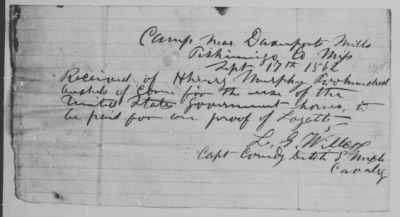 Camp Near Davenport Mills
Tishimingo Co Miss
Sept 17th 1862
Received of Henry Murphy Two hundred
bushels of Corn for the use of the
United States government horses, to
be paid for on proof of Loyalty
L. G. Wilcox
Capt Comdg Detch 3rd Mich
Cavalry